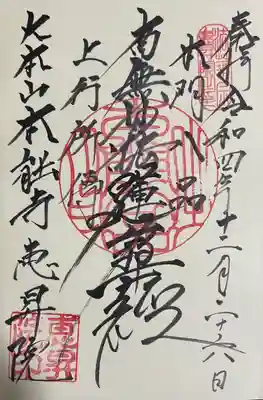 奉拝 令和四年十二月二十六日
本門八品
南無妙法蓮華経
上行所伝
大本山本能寺 恵昇院